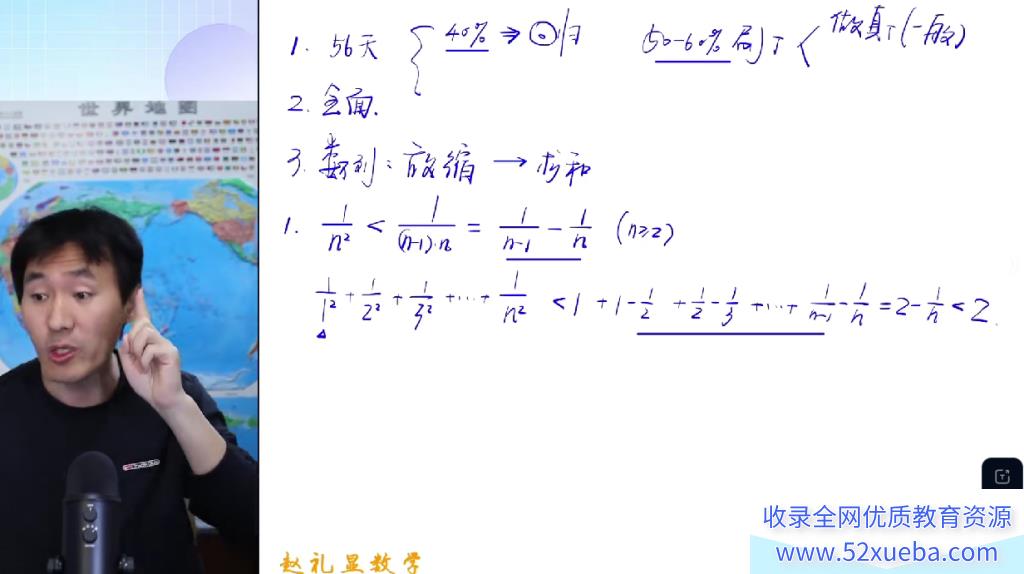 1. 56天 { 40% ⇒ 回归 50-60% 局部 < 做真T(一般)
2. 全面.
3. 数列: 放缩 → 求和
1. 1/n² < 1/((n-1)·n) = 1/(n-1) - 1/n (n≥2)
1/1² + 1/2² + 1/3² + ... + 1/n² < 1 + 1 - 1/2 + 1/2 - 1/3 + ... + 1/(n-1) - 1/n = 2 - 1/n < 2.
世界地图
收录全网优质教育资源
www.52xueba.com
赵礼显数学